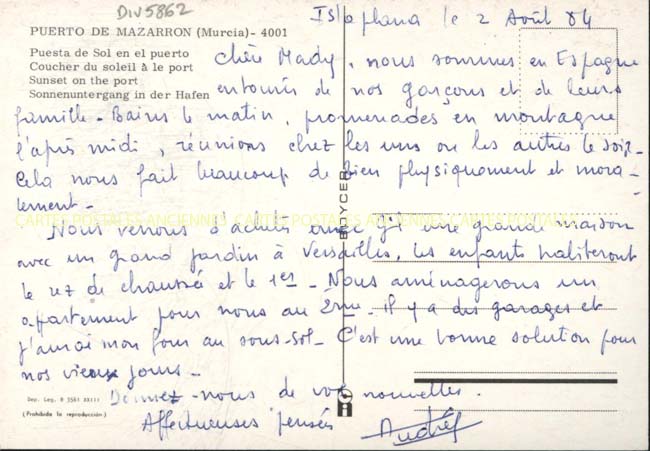 DIV5862
Isla plana le 2 Août 84
PUERTO DE MAZARRON (Murcia) - 4001
Puesta de Sol en el puerto
Coucher du soleil à le port
Sunset on the port
Sonnenuntergang in der Hafen
Chère Mady, nous sommes en Espagne
entourés de nos garçons et de leurs
famille - Bains le matin, promenades en montagne
l'après midi, réunions chez les uns ou les autres le soir -
Cela nous fait beaucoup de bien physiquement et mora-
lement -
CARTES POSTALES ANCIENNES CARTES POSTALES ANCIENNES CARTES POSTALES
Nous venons d'acheter avec une grande maison
avec un grand jardin à Versailles, les enfants habiteront
le rez de chaussée et le 1er - Nous aménagerons un
appartement pour nous au 2ème - il y a des garages et
j'aurai mon four au sous-sol - C'est une bonne solution pour
nos vieux jours -
Donnez-nous de vos nouvelles.
Affectueuses pensées
Andrée
BEYCER
Dep. Leg. B 3561 XXIII
(Prohibida la reproducción)